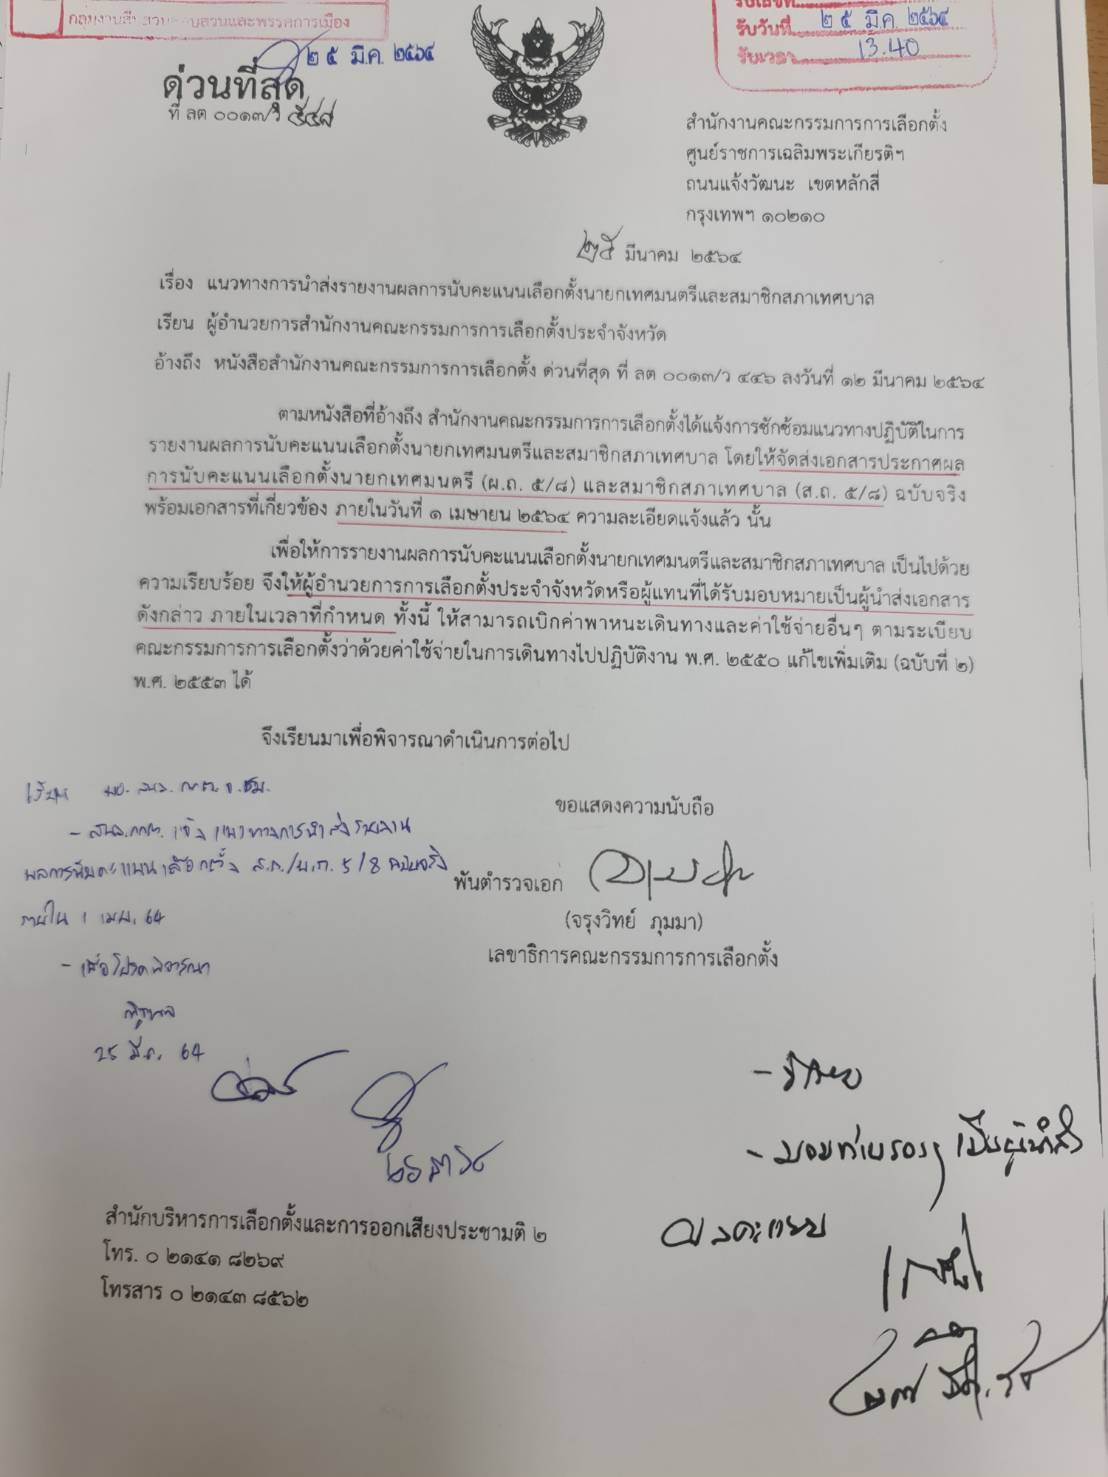 กลุ่มงานสืบสวนสอบสวนและพรรคการเมือง
๒๕ มี.ค. ๒๕๖๔
รับเลขที่
รับวันที่ ๒๕ มี.ค. ๒๕๖๔
รับเวลา 13.40
ด่วนที่สุด
ที่ ลต ๐๐๑๓/ว
สำนักงานคณะกรรมการการเลือกตั้ง
ศูนย์ราชการเฉลิมพระเกียรติฯ
ถนนแจ้งวัฒนะ เขตหลักสี่
กรุงเทพฯ ๑๐๒๑๐
๒๕ มีนาคม ๒๕๖๔
เรื่อง แนวทางการนำส่งรายงานผลการนับคะแนนเลือกตั้งนายกเทศมนตรีและสมาชิกสภาเทศบาล
เรียน ผู้อำนวยการสำนักงานคณะกรรมการการเลือกตั้งประจำจังหวัด
อ้างถึง หนังสือสำนักงานคณะกรรมการการเลือกตั้ง ด่วนที่สุด ที่ ลต ๐๐๑๓/ว ๔๔๖ ลงวันที่ ๑๒ มีนาคม ๒๕๖๔
ตามหนังสือที่อ้างถึง สำนักงานคณะกรรมการการเลือกตั้งได้แจ้งการซักซ้อมแนวทางปฏิบัติในการ
รายงานผลการนับคะแนนเลือกตั้งนายกเทศมนตรีและสมาชิกสภาเทศบาล โดยให้จัดส่งเอกสารประกาศผล
การนับคะแนนเลือกตั้งนายกเทศมนตรี (ผ.ถ. ๕/๘) และสมาชิกสภาเทศบาล (ส.ถ. ๕/๘) ฉบับจริง
พร้อมเอกสารที่เกี่ยวข้อง ภายในวันที่ ๑ เมษายน ๒๕๖๔ ความละเอียดแจ้งแล้ว นั้น
เพื่อให้การรายงานผลการนับคะแนนเลือกตั้งนายกเทศมนตรีและสมาชิกสภาเทศบาล เป็นไปด้วย
ความเรียบร้อย จึงให้ผู้อำนวยการการเลือกตั้งประจำจังหวัดหรือผู้แทนที่ได้รับมอบหมายเป็นผู้นำส่งเอกสาร
ดังกล่าว ภายในเวลาที่กำหนด ทั้งนี้ ให้สามารถเบิกค่าพาหนะเดินทางและค่าใช้จ่ายอื่นๆ ตามระเบียบ
คณะกรรมการการเลือกตั้งว่าด้วยค่าใช้จ่ายในการเดินทางไปปฏิบัติงาน พ.ศ. ๒๕๕๐ แก้ไขเพิ่มเติม (ฉบับที่ ๒)
พ.ศ. ๒๕๕๓ ได้
จึงเรียนมาเพื่อพิจารณาดำเนินการต่อไป
ขอแสดงความนับถือ
พันตำรวจเอก
(จรุงวิทย์ ภุมมา)
เลขาธิการคณะกรรมการการเลือกตั้ง
เรียน ผอ. สนง. กกต. จ. ชม.
- สนง.กกต. แจ้งแนวทางการนำส่งรายงาน
ผลการนับคะแนนเลือกตั้ง ส.ถ./ผ.ถ. 5/8 ฉบับจริง
ภายใน 1 เมย. 64
- เพื่อโปรดพิจารณา
25 มี.ค. 64
- ทราบ
- มอบท่านรองฯ เป็นผู้นำส่ง
ผลคะแนน
สำนักบริหารการเลือกตั้งและการออกเสียงประชามติ ๒
โทร. ๐ ๒๑๔๑ ๘๒๖๙
โทรสาร ๐ ๒๑๔๓ ๘๕๖๒